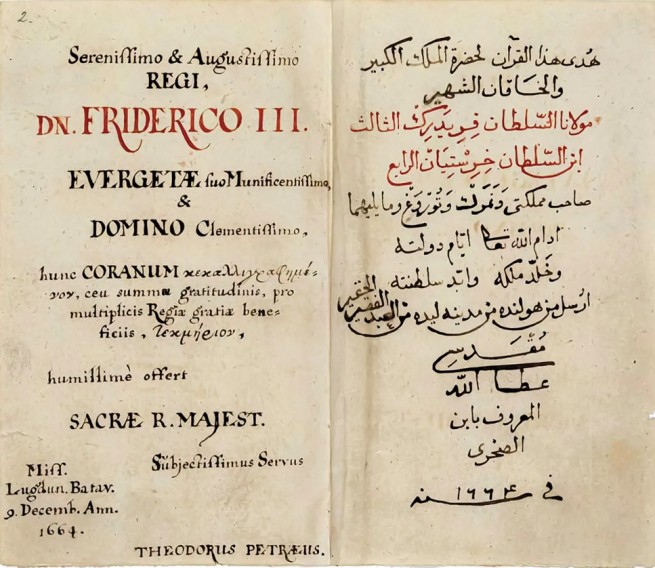 2.
Serenissimo & Augustissimo
REGI,
DN. FRIDERICO III.
EVERGETÆ suo Munificentissimo,
&
DOMINO Clementissimo,
hunc CORANUM κεκαλλιγραφημέ-
νον, ceu summæ gratitudinis, pro
multiplicis Regiæ gratiæ bene-
ficiis, τεκμήριον,
humillimè offert
SACRÆ R. MAJEST.
Subjectissimus Servus
Miss.
Lugdun. Batav.
9. Decemb. Ann.
1664.
THEODORUS PETRÆUS.
هُدى هذا القرآن لحضرة الملك الكبير
والخاقان الشهير
مولانا السّلطان فريدرك الثالث
ابن السّلطان خرستيان الرابع
صاحب مملكتى دنمرك ونوروغ وما يليهما
ادام الله تعا ايّام دولته
وخلّد ملكه وابّد سلطنته
ارسل من هولنده من مدينه ليده من العبد الفقير الحقير
مُقدسي
عطا الله
المعروف بابن
الصخرى
في سنه ١٦٦٤